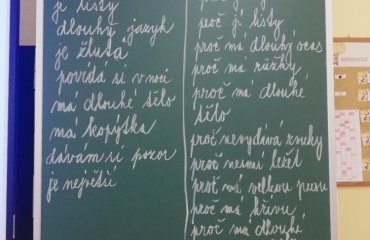 jí listy
dlouhý jazyk
je žlutá
povídá si v noci
má dlouhé tělo
má kopýtka
dávám si pozor
je největší
proč jí listy
proč má dlouhý ocas
proč má růžky
proč má dlouhé
tělo
proč nevydává zvuky
proč neumí ležet
proč má velkou pusu
proč má hřívu
proč má dlouhé